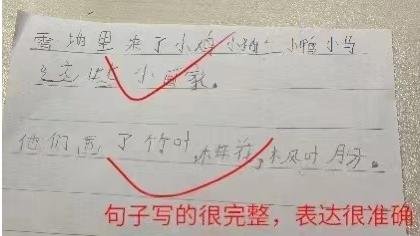 雪地里来了小鸡小狗小鸭小马
小画家。
他们画了竹叶,梅花,枫叶月牙。
句子写的很完整，表达很准确